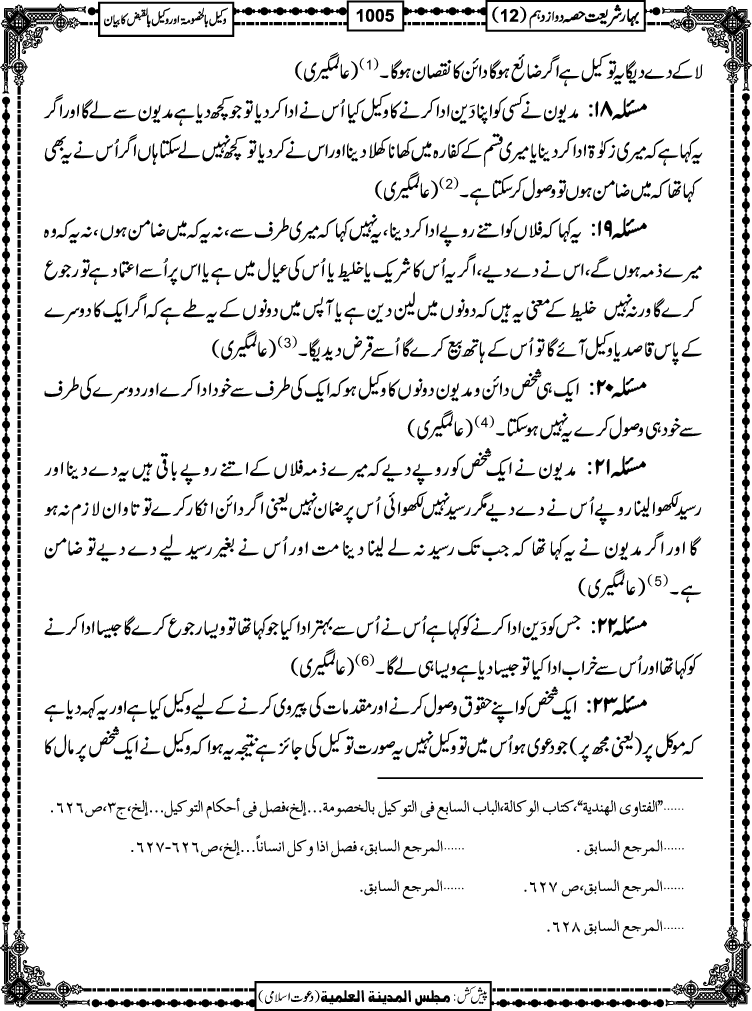 بہار شریعت حصہ دوازدہم (12)
1005
وکیل بالخصومۃ اور وکیل بالقبض کا بیان
لا کے دے دیگا یہ توکیل ہے اگر ضائع ہوگا دائن کا نقصان ہوگا۔(1) (عالمگیری)
مسئلہ ۱۸: مدیون نے کسی کو اپنا دَین ادا کرنے کا وکیل کیا اُس نے ادا کر دیا تو جو کچھ دیا ہے مدیون سے لے گا اور اگر
یہ کہا ہے کہ میری زکوٰۃ ادا کر دینا یا میری قسم کے کفارہ میں کھانا کھلا دینا اور اس نے کر دیا تو کچھ نہیں لے سکتا ہاں اگر اُس نے یہ بھی
کہا تھا کہ میں ضامن ہوں تو وصول کر سکتا ہے۔(2) (عالمگیری)
مسئلہ ۱۹: یہ کہا کہ فلاں کو اتنے روپے ادا کر دینا، یہ نہیں کہا کہ میری طرف سے، نہ یہ کہ میں ضامن ہوں، نہ یہ کہ وہ
میرے ذمہ ہوں گے، اس نے دے دیے، اگر یہ اُس کا شریک یا خلیط یا اُس کی عیال میں ہے یا اس پر اُسے اعتماد ہے تو رجوع
کرے گا ورنہ نہیں خلیط کے معنی یہ ہیں کہ دونوں میں لین دین ہے یا آپس میں دونوں کے یہ طے ہے کہ اگر ایک کا دوسرے
کے پاس قاصد یا وکیل آئے گا تو اُس کے ہاتھ بیع کرے گا اُسے قرض دیدیگا۔(3) (عالمگیری)
مسئلہ ۲۰: ایک ہی شخص دائن و مدیون دونوں کا وکیل ہو کہ ایک کی طرف سے خود ادا کرے اور دوسرے کی طرف
سے خود ہی وصول کرے یہ نہیں ہو سکتا۔(4) (عالمگیری)
مسئلہ ۲۱: مدیون نے ایک شخص کو روپے دیے کہ میرے ذمہ فلاں کے اتنے روپے باقی ہیں یہ دے دینا اور
رسید لکھوا لینا روپے اُس نے دے دیے مگر رسید نہیں لکھوائی اُس پر ضمان نہیں یعنی اگر دائن انکار کرے تو تاوان لازم نہ ہو
گا اور اگر مدیون نے یہ کہا تھا کہ جب تک رسید نہ لے لینا دینا مت اور اُس نے بغیر رسید لیے دے دیے تو ضامن
ہے۔(5) (عالمگیری)
مسئلہ ۲۲: جس کو دَین ادا کرنے کو کہا ہے اُس نے اُس سے بہتر ادا کیا جو کہا تھا تو ویسا رجوع کرے گا جیسا ادا کرنے
کو کہا تھا اور اُس سے خراب ادا کیا تو جیسا دیا ہے ویسا ہی لے گا۔(6) (عالمگیری)
مسئلہ ۲۳: ایک شخص کو اپنے حقوق وصول کرنے اور مقدمات کی پیروی کرنے کے لیے وکیل کیا ہے اور یہ کہہ دیا ہے
کہ موکل پر (یعنی مجھ پر) جو دعویٰ ہو اُس میں تو وکیل نہیں یہ صورت توکیل کی جائز ہے نتیجہ یہ ہوا کہ وکیل نے ایک شخص پر مال کا
......"الفتاوی الهندية"،کتاب الوکالة،الباب السابع فی التوکیل بالخصومة...إلخ،فصل فی أحکام التوکیل...إلخ،ج۳،ص۶۲۶.
......المرجع السابق . ......المرجع السابق، فصل اذا وکل انساناً...إلخ،ص۶۲۶-۶۲۷.
......المرجع السابق،ص ۶۲۷. ......المرجع السابق.
......المرجع السابق ۶۲۸.
پیش کش: مجلس المدينة العلمية (دعوت اسلامی)